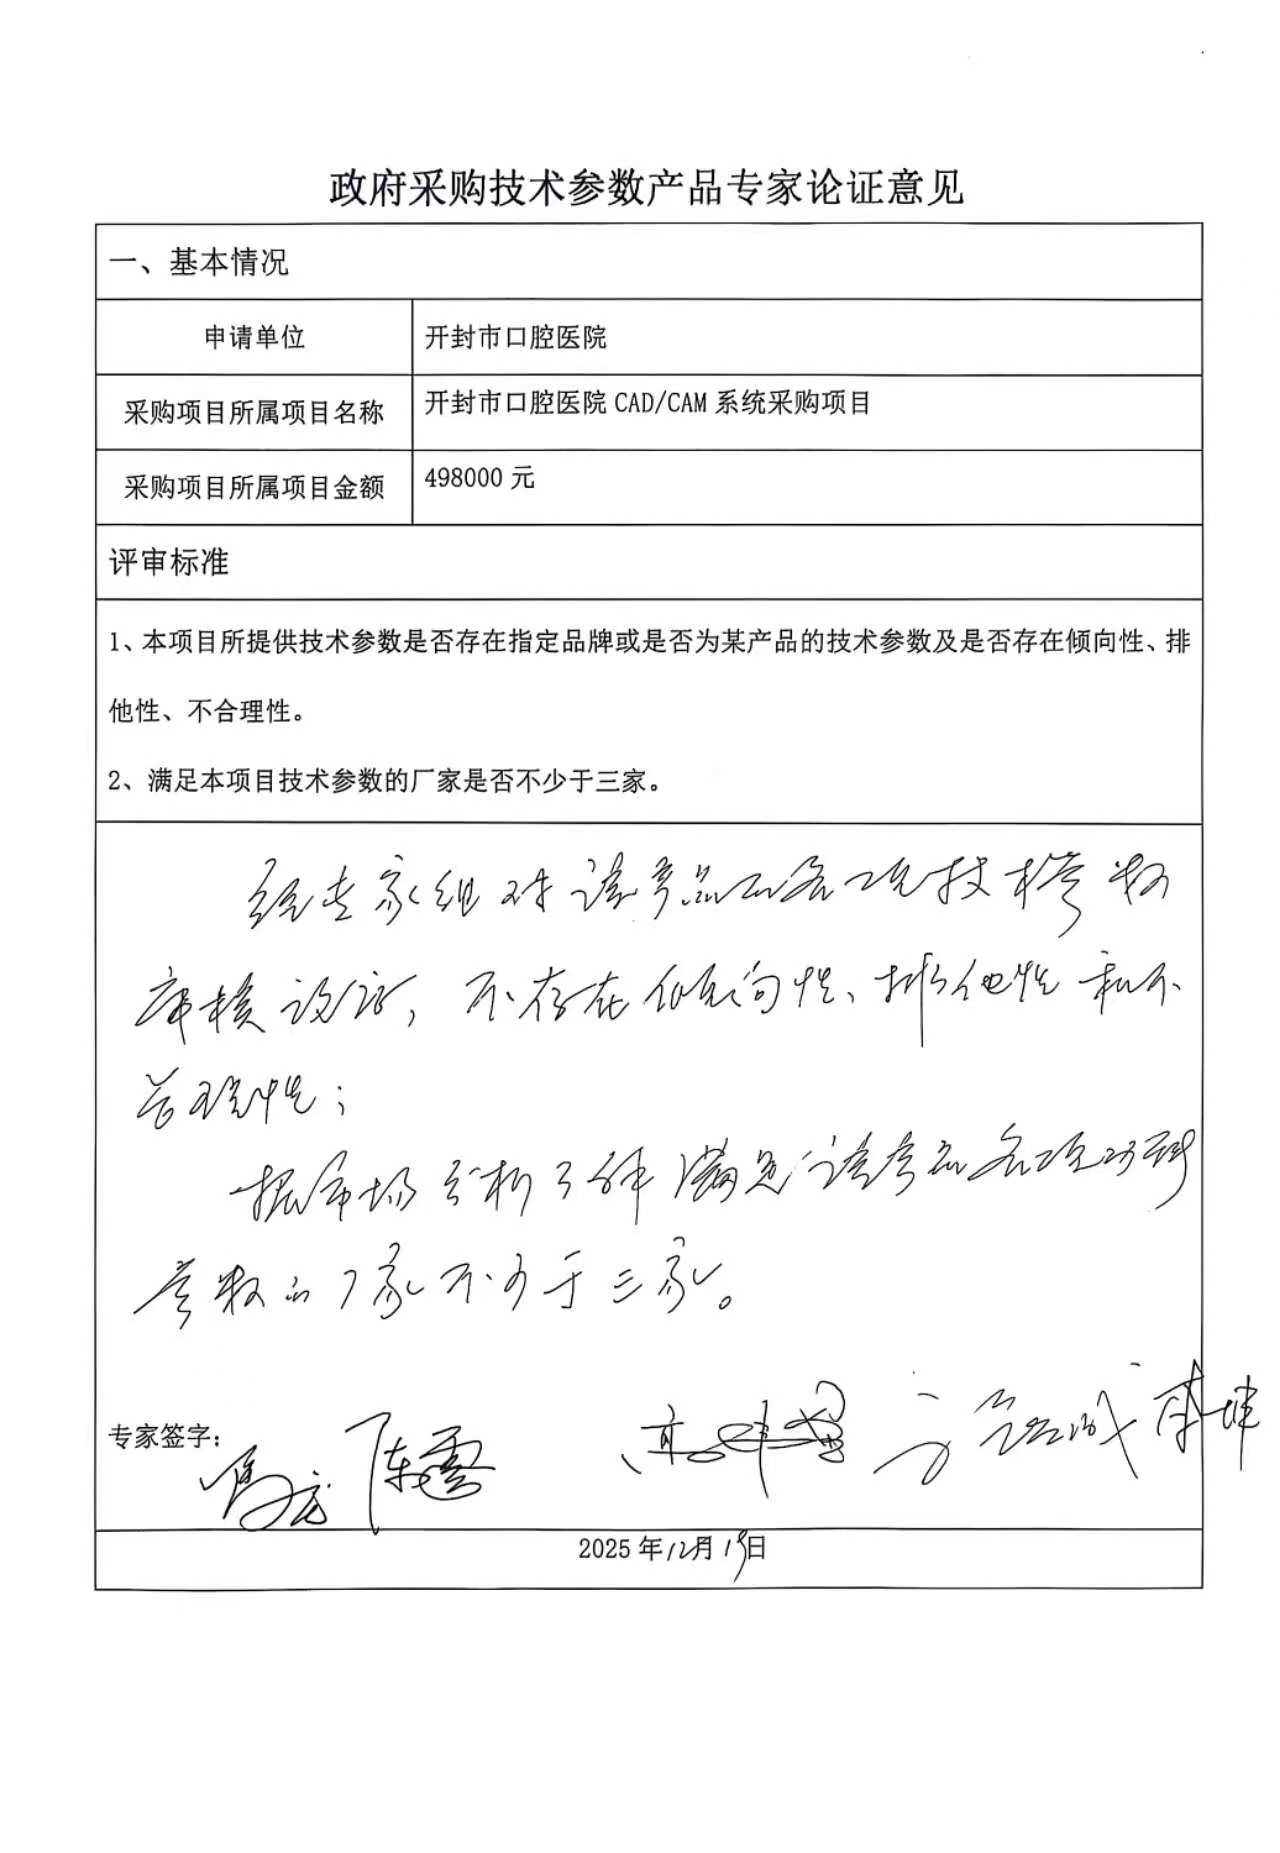 政府采购技术参数产品专家论证意见
一、基本情况
申请单位
开封市口腔医院
采购项目所属项目名称
开封市口腔医院 CAD/CAM 系统采购项目
采购项目所属项目金额
498000 元
评审标准
1、本项目所提供技术参数是否存在指定品牌或是否为某产品的技术参数及是否存在倾向性、排
他性、不合理性。
2、满足本项目技术参数的厂家是否不少于三家。
经专家组对该产品的各项技术参数
审核论证，不存在倾向性、排他性和不
合理性；
据市场分析了解满足该产品各项
参数的厂家不少于三家。
专家签字：
2025 年12月19日